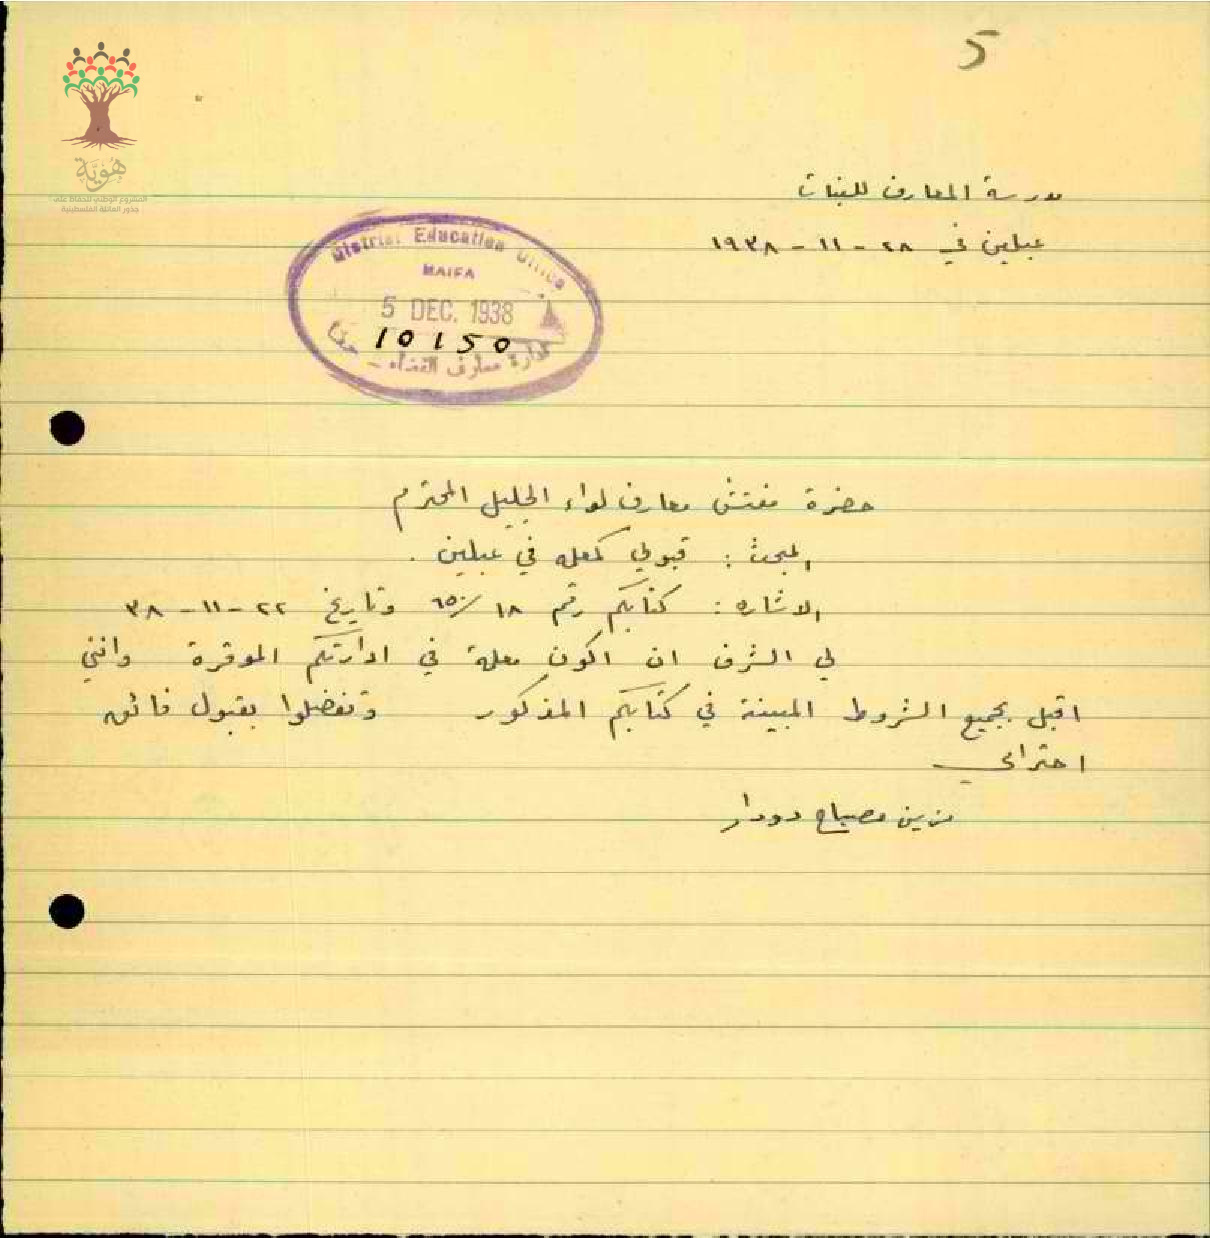 5
هُوِيَّة
المشروع الوطني للحفاظ على
جذور العائلة الفلسطينية
مدرسة المعارف للبنات
عبلين في ٢٨ - ١١ - ١٩٣٨
District Education Office
HAIFA
5 DEC. 1938
10150
ادارة معارف القضاء - حيفا
حضرة مفتش معارف لواء الجليل المحترم
المبحث : قبولي كمعلمه في عبلين .
الاشاره : كتابكم رقم ١٨/٦٥ وتاريخ ٢٢ - ١١ - ٣٨
لي الشرف ان اكون معلمة في ادارتكم الموقرة وانني
اقبل بجميع الشروط المبينة في كتابكم المذكور وتفضلوا بقبول فائق
احترامي
مصباح دودار